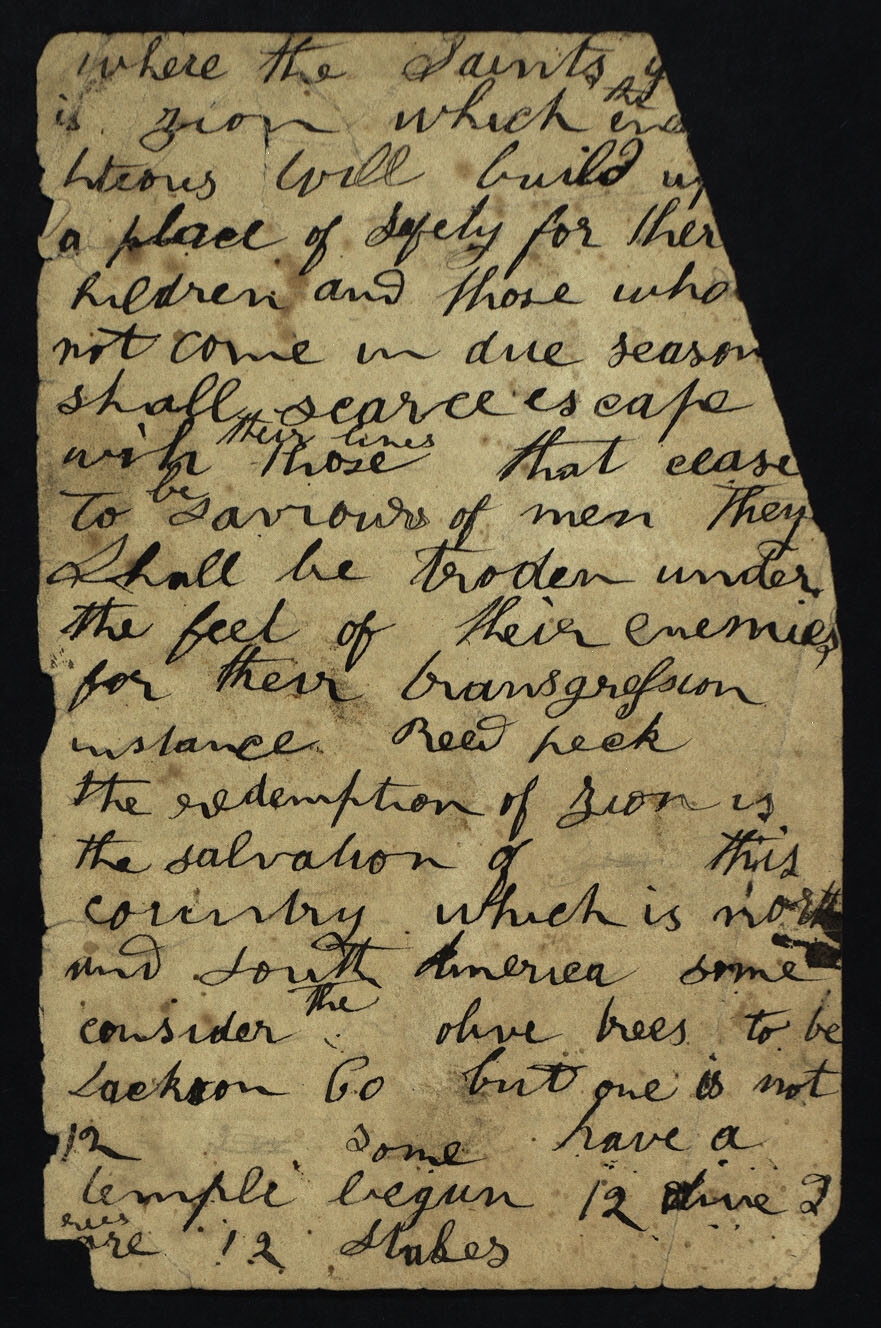 where the Saints g
is zion which the
hteous will build up
a place of safety for ther
hildren and those who
not come in due season
shall scarce escape
with their lives those that cease
to be saviours of men they
Shall be troden under
the feet of their enemies
for their transgression
instance Reed peck
the redemption of zion is
the salvation of this
country which is north
and South America some
consider the olive trees to be
Jackson Co but one is not
12 some have a
temple begun 12 olive
trees are 12 stakes